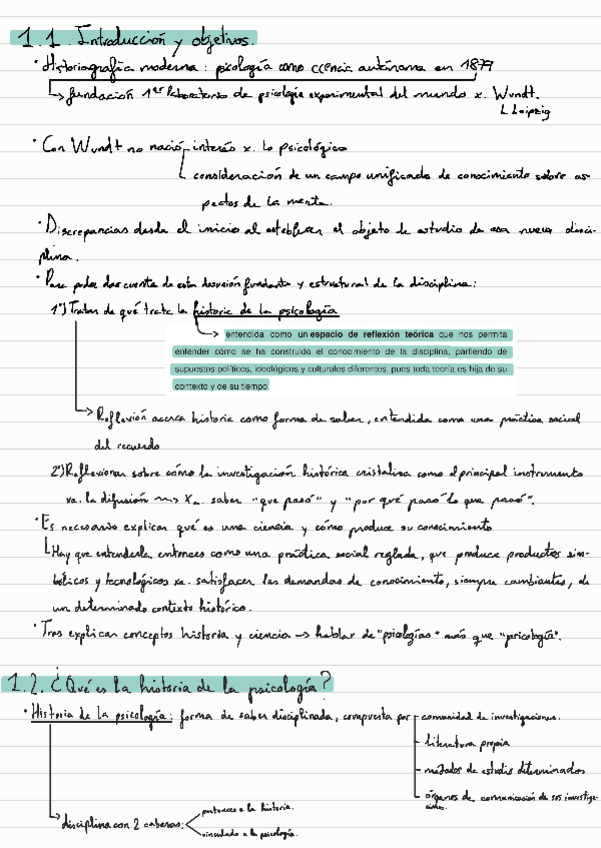 1.1. Introducción y objetivos.
· Historiografía moderna: psicología como ciencia autónoma en 1879
fundación 1er laboratorio de psicología experimental del mundo x. Wundt.
Leipzig
· Con Wundt no nació interés x. lo psicológico
consideración de un campo unificado de conocimiento sobre as-
pectos de la mente.
· Discrepancias desde el inicio al establecer el objeto de estudio de esa nueva disci-
plina.
· Para poder dar cuenta de esta desunión fundante y estructural de la disciplina:
1º) Tratar de qué trata la historia de la psicología
entendida como un espacio de reflexión teórica que nos permita
entender cómo se ha construido el conocimiento de la disciplina, partiendo de
supuestos políticos, ideológicos y culturales diferentes, pues toda teoría es hija de su
contexto y de su tiempo
Reflexión acerca historia como forma de saber, entendida como una práctica social
del recuerdo
2º) Reflexionar sobre cómo la investigación histórica cristaliza como el principal instrumento
xa. la difusión xa. saber "que pasó" y "por qué pasó lo que pasó".
· Es necesario explicar qué es una ciencia y cómo produce su conocimiento
Hay que entenderla entonces como una práctica social reglada, que produce productos sim-
bólicos y tecnológicos xa. satisfacer las demandas de conocimiento, siempre cambiantes, de
un determinado contexto histórico.
· Tras explicar conceptos historia y ciencia → hablar de "psicologías" más que "psicología".
1.2. ¿Qué es la historia de la psicología?
· Historia de la psicología: forma de saber disciplinada, compuesta por comunidad de investigaciones.
literatura propia
métodos de estudio determinados
órganos de comunicación de sus investiga-
ciones.
disciplina con 2 cabezas:
pertenece a la historia.
vinculada a la psicología.